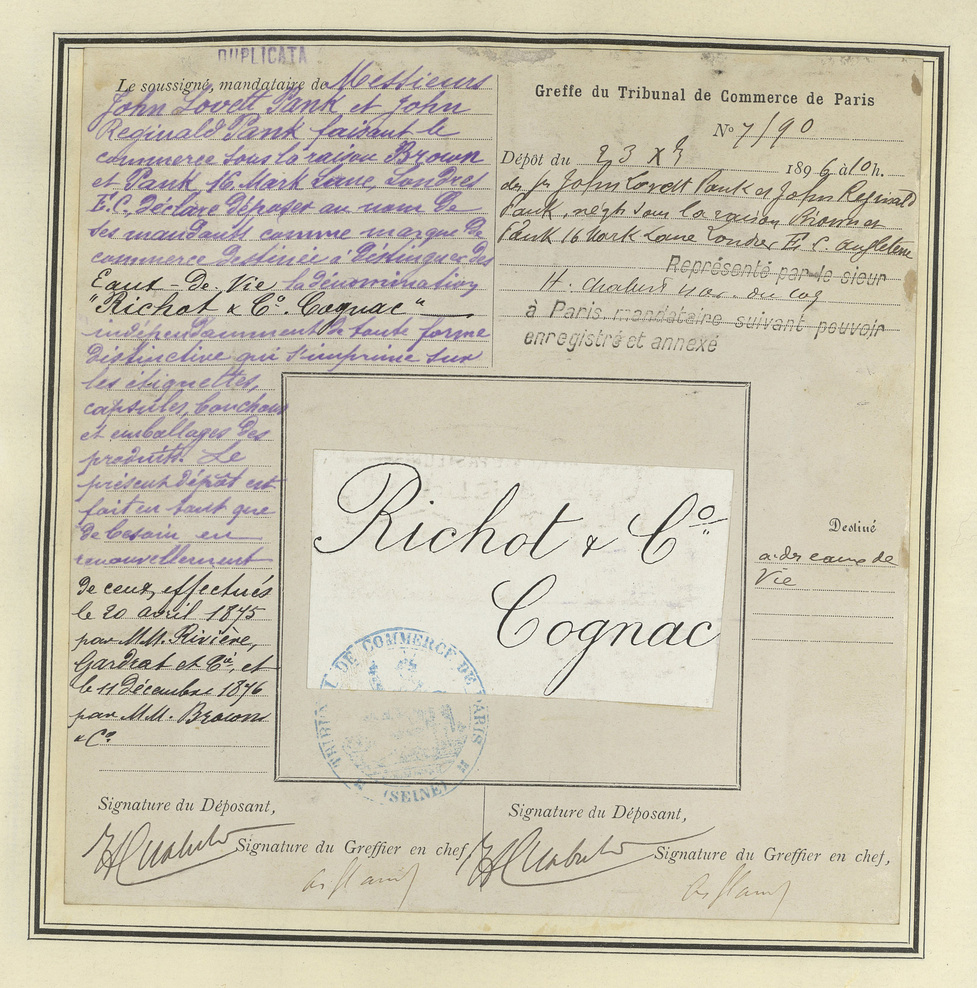 DUPLICATA
Le soussigné, mandataire de Messieurs
John Lovett Pank et John
Reginald Pank faisant le
commerce sous la raison Brown
et Pank, 16. Mark Lane, Londres
E.C. Déclare déposer au nom de
ses mandants comme marque de
commerce destinée à distinguer des
Eaux-De-Vie la dénomination
"Richot & Cº. Cognac"
indépendamment de toute forme
distinctive qui s'imprime sur
les étiquettes,
capsules, bouchons
et emballages des
produits. Le
présent dépôt est
fait en tant que
de besoin en
renouvellement
de ceux effectués
le 20 avril 1875
par MM. Rivière,
Gardrat et Cie, et
le 11 Décembre 1876
par MM. Browns
& Cº
Greffe du Tribunal de Commerce de Paris
Nº 7/90
Dépôt du 23 Xbre 1896 à 10 h.
des srs John Lovett Pank et John Reginald
Pank, négts sous la raison Brown et
Pank 16 Mark Lane Londres E.C. Angleterre
Représenté par le sieur
H. Chabert
à Paris mandataire suivant pouvoir
enregistré et annexé
Richot & Cº
Cognac
TRIBUNAL DE COMMERCE DE PARIS
(SEINE)
Destiné
à des eaux de
Vie
Signature du Déposant,
Signature du Greffier en chef
Signature du Déposant,
Signature du Greffier en chef,